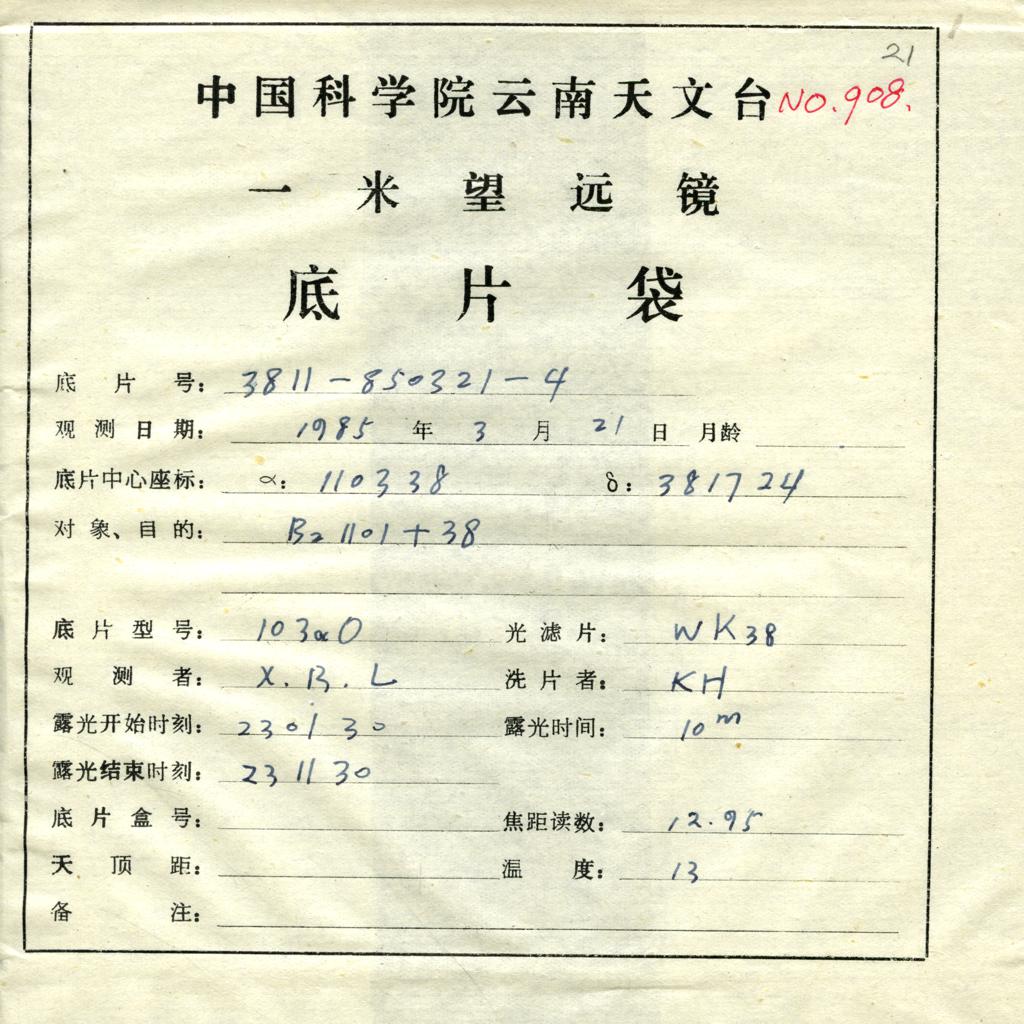 21
中国科学院云南天文台 NO.908.
一米望远镜
底片袋
底片号: 3811-850321-4
观测日期: 1985 年 3 月 21 日 月龄
底片中心座标: α: 110338 δ: 381724
对象、目的: B2 1101+38
底片型号: 103aO 光滤片: WK38
观测者: X.B.L 洗片者: KH
露光开始时刻: 230130 露光时间: 10m
露光结束时刻: 231130
底片盒号: 焦距读数: 12.95
天顶距: 温度: 13
备注: